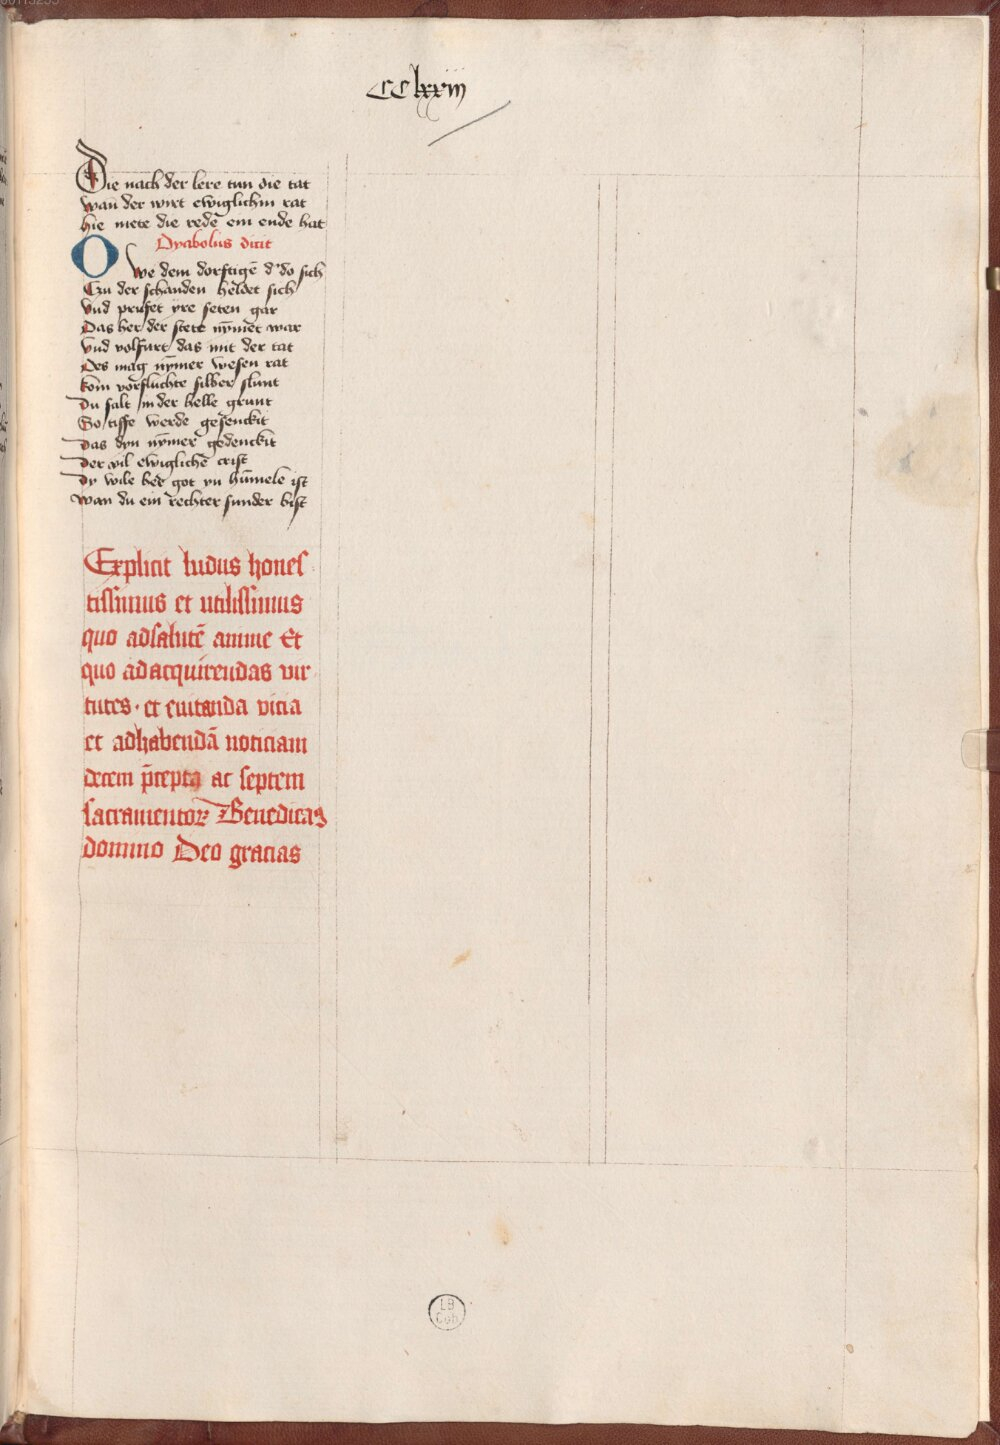 CClxxiij
Die nach der lere tun die tat
wan̄ der wirt ewiglichin rat
hie mete die rede ein ende hat
Dyabolus dicit
Owe dem dorftigē d' do sich
Czu der schanden heldet sich
Vnd prufet yre seten gar
Das her der stete nȳmet war
Vnd volfurt das mit der tat
Des mag nȳmer wesen rat
kom vorfluchte silber slunt
Du salt in der helle grunt
So tiffe werde gesenckit
Das dyn nȳmer gedenckit
Der vil ewiglichē crist
Dy wile her got yn hūmele ist
wan du ein rechter sunder bist
Explicit ludus hones
tissimus et utilissimus
quo adsalutē anime Et
quo adacquirendas vir
tutes · et euitanda vicia
et adhabendā noticiam
decem p̄ceptoꝝ ac septem
sacramentoꝝ Benedicaꝫ
domino Deo gracias
LB
Cob.